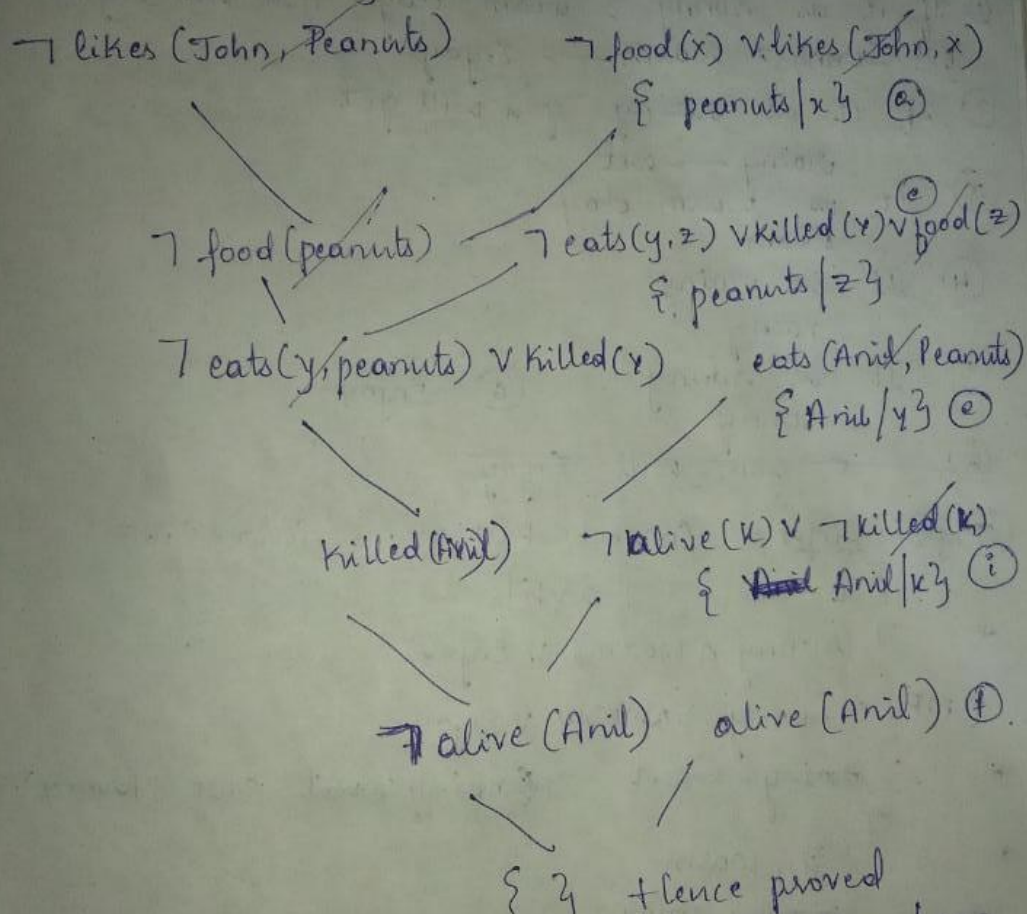 ¬ likes (John, Peanuts) ¬ food(x) V likes (John, x)
{ peanuts/x} (a)
¬ food (peanuts) ¬ eats(y, z) V killed (Y) V food (z) (c)
{ peanuts/z}
¬ eats(y, peanuts) V Killed(Y) eats (Anil, Peanuts)
{ Anil/y} (e)
Killed (Anil) ¬ alive (K) V ¬ killed (K)
{ Anil/K} (i)
¬ alive (Anil) alive (Anil) (f).
{ } Hence proved